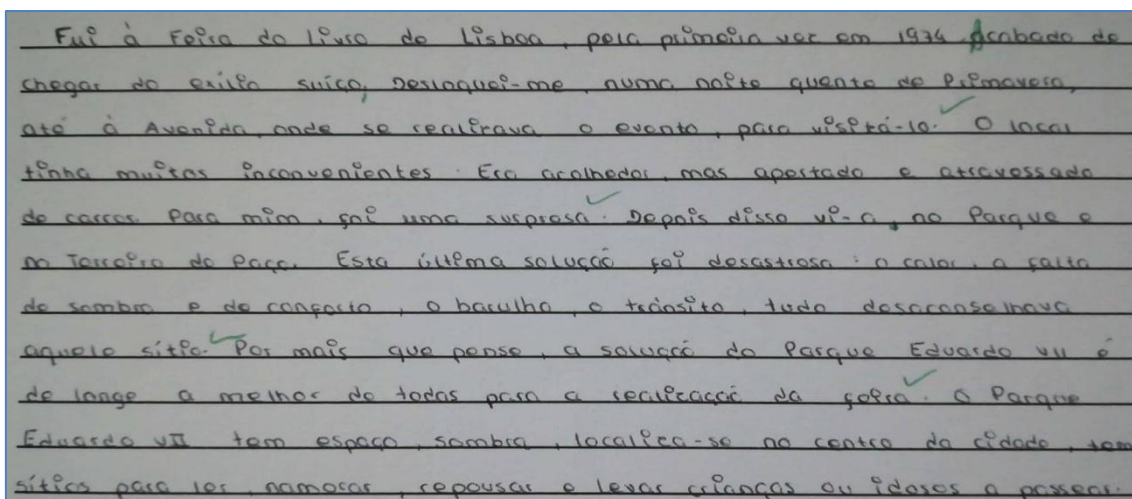 Fui à Feira do Livro de Lisboa, pela primeira vez em 1974. Acabado de
chegar do exílio suíço, Desloquei-me, numa noite quente de Primavera,
até à Avenida, onde se realizava o evento, para visitá-lo. O local
tinha muitos inconvenientes. Era acolhedor, mas apertado e atravessado
de carros. Para mim, foi uma surpresa. Depois disso vi-a, no Parque e
no Terreiro do Paço. Esta última solução foi desastrosa: o calor, a falta
de sombra e de conforto, o barulho, o trânsito, tudo desaconselhava
aquele sítio. Por mais que pense, a solução do Parque Eduardo VII é
de longe a melhor de todas para a realização da feira. O Parque
Eduardo VII tem espaço, sombra, localiza-se no centro da cidade, tem
sítios para ler, namorar, repousar e levar crianças ou idosos a passear.